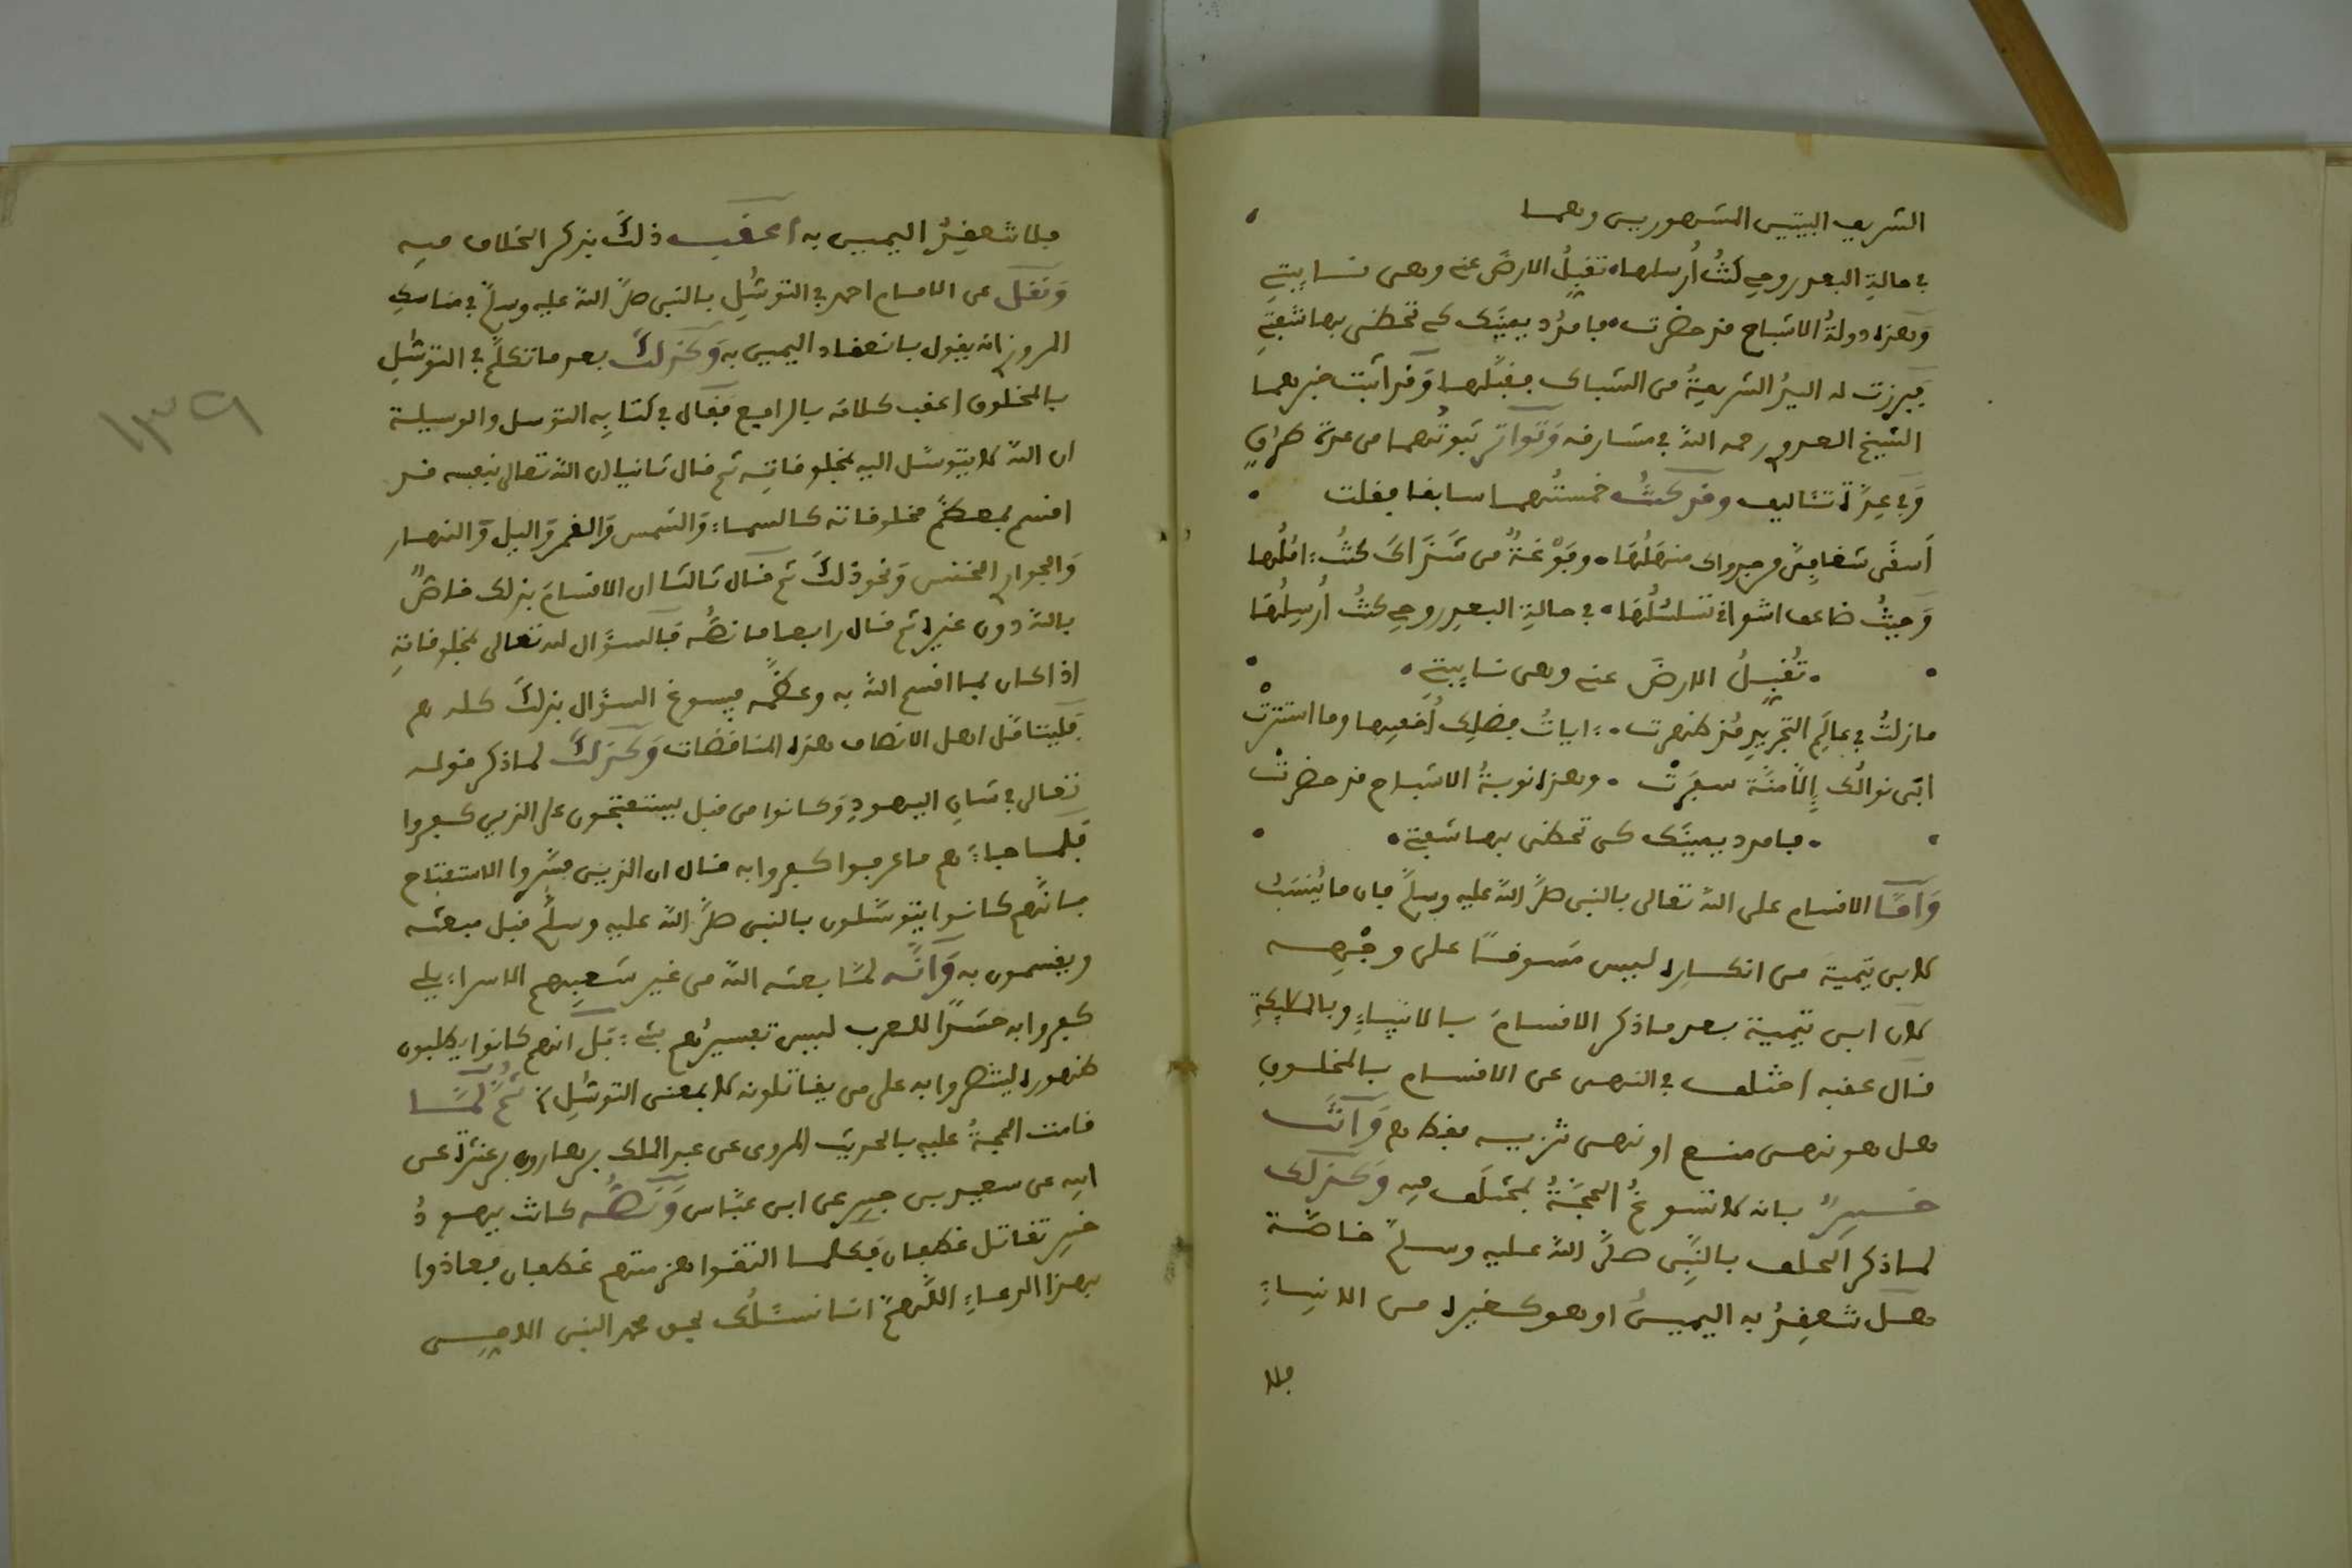 الشريف البيتين المشهورين وهما
في حالة البعد روحي كنتُ أرسلها • تقبلُ الارضَ عني وهي نايبتي
وهذه دولةُ الاشباح قد حضرت • فامدُد يمينَك كي تحظى بها شفتي
فبرزت له اليدُ الشريفةُ من الشباك فقبَّلها وَقد اثبت خبرهما
الشيخ العدوي رحمه اللهُ في مشارقه وَتواتر ثبوتُهما من عدة طرقٍ
وَفي عِدَّة تئاليف وقد كنتُ خمستُهما سابقا فقلت
وَحيثُ ضاعف اشواقي تسلسُلُها • في حالةِ البعدِ روحي كنتُ أُرسِلُها
• تُقبِلُ الارضَ عني وهي نايبتي •
مازلتُ في عالَمِ التجريدِ مُذ ظهرت • ءاياتُ فضلِك أُخفيها وما استترتْ
• وهذه نوبةُ الاشباح قد حضرتْ
• فامدد يمينَك كي تحظى بها شفتي •
وَأمَّا الاقسام على اللهِ تعالى بالنبي صلَّى اللهُ عليه وسلمَّ فإن ما يُنسَبُ
لابن تيمية من انكاره ليس مَسوقًا على وجْهِه
لان ابن تيمية بعد ما ذكر الاقسامَ بالانبياءِ وبالملايكةِ
قال عقبه اختلف في النهي عن الاقسام بالمخلوقِ
هل هو نهي منع او نهي تنزيه فقط وَانت
خبيرٌ بانه لا تسوغُ الحجَّةُ بمختَلَف فيه وَكذلك
لما ذكر الحلف بالنَّبِي صلَّى اللهُ عليه وسلمَّ خاصَّة
هل تنعقِدُ به اليمينُ او هو كغيره من الانبياءِ
فلا

فلا تنعقِدُ اليمين به أعقب ذلكَ بذكر الخلاف فيه
وَنقل عن الامام احمد في التوسُّلِ بالنبي صلَّى اللهُ عليه وسلمَّ في مناسك
المروزي انه يقول بانعقاد اليمين به وَكذلك بعد ما تكلمَّ في التوسُّلِ
بالمخلوق اعقب كلامَه بالرافع فقال في كتابِه التوسل والوسيلة
ان اللهَ لا يتوسَّل اليه بمخلوقاتِه ثم قال ثانيا ان الله تعالى بنفسه قد
اقسم بمعظمِّ مخلوقاته كالسماء وَالشمس وَالقمر وَاليل وَالنهار
وَالجوار الخنس وَنحو ذلكَ ثم قال ثالثا ان الاقسامَ بذلك خاصٌّ
باللهِ دون غيره ثم قال رابعا ما نصُّه فَالسؤال له تعالى بمخلوقاتِه
اذا كان بما اقسم اللهُ به وعظَّمه فيسوغ السؤال بذلكَ كله هـ
فَليتأمَّل اهل الانصاف هذه المناقضات وَكذلكَ لما ذكر قوله
تعالى في شانِ اليهودِ وَكانوا من قبل يستفتحون على الذين كفروا
فلما جاءَهم ما عرفوا كفروا به قال ان الذين فسَّروا الاستفتاح
بانَّهم كانوا يتوسَّلون بالنبي صلَّى اللهُ عليه وسلمَّ قبل مبعثه
ويقسمون به وَانَّه لمَّا بعثه اللهُ من غير شعبِهم الاسراءيلي
كفروا به حسَدًا للعرب ليس تفسيرُهم بشيء بَل انهم كانوا يطلبون
ظهوره لينتصروا به على من يقاتلونه لا بمعنى التوسُّلِ ثُمَّ لمَّا
قامت الحجةُ عليه بالحديث المروي عن عبد الملك بن هارون بن عنترة عن
ابيه عن سعيد بن جبير عن ابن عبَّاس وَنصُّه كانت يهودُ
خيبر تقاتل غطفان فكلما التقوا هزمتهم غطفان فعاذوا
بهذا الدعاءِ اللَّهمَّ انا نسئَلُك بحق محمد النبي الامي
١٣٩